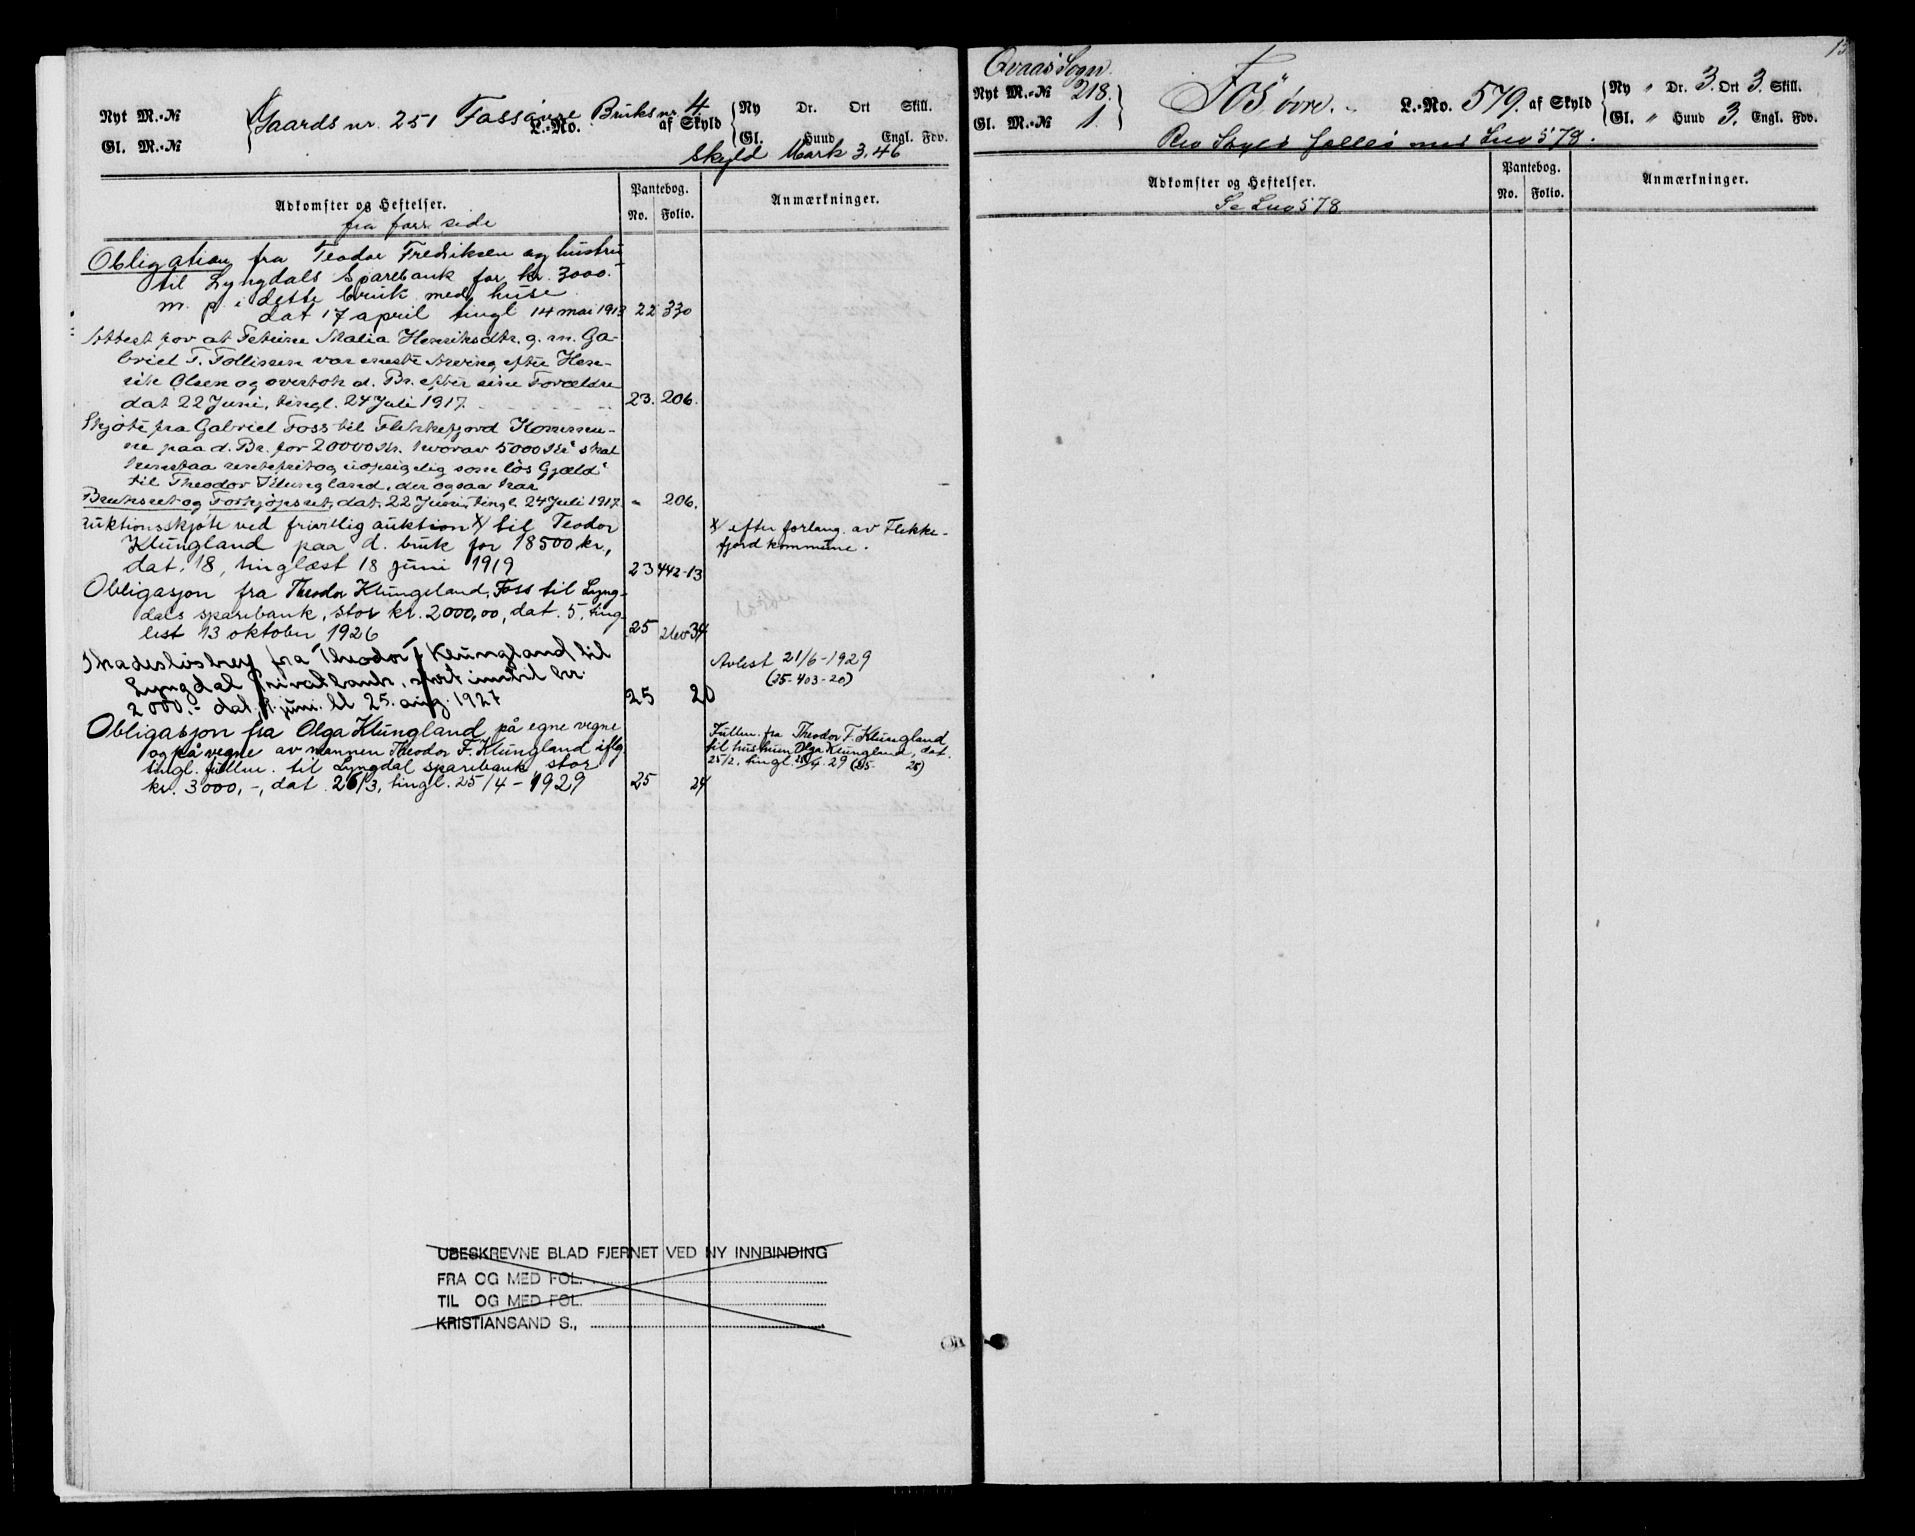 Nyt M.-№
Gl. M.-№
Gaards nr. 251 Fossøvre Bruksnr. 4
L.-No. af Skyld
Ny Dr. Ort Skill.
Gl. Hund Engl. Fdv.
Skyld Mark 3.46
Adkomster og Heftelser.
Pantebog.
No. Folio.
Anmærkninger.
fra forr. side
Obligation fra Teodor Fredriksen og hustru
til Lyngdals Sparebank for kr. 3000.-
m. p. i dette bruk med huse
dat 17 april tingl 14 mai 1913 22 330
Attest for at Petrine Malia Henriksdtr. g. m. Ga-
briel T. Tollissen var eneste Arving efter Hen-
rik Olsen og overtok d. Br. efter sine Forældre
dat 22 Juni, tingl. 24 Juli 1917. 23. 206.
Skjöte fra Gabriel Foss til Flekkefjord Kommu-
ne paa d. Br. for 20000 Kr. hvorav 5000 Kr "skal
henstaa rentefrit og uopsigelig som lös Gjæld"
til Theodor Klungland, der ogsaa har
Bruksret og Forkjöpsret, dat. 22 Juni, tingl. 24 Juli 1917. " 206.
Auktionsskjöte ved frivillig auktion x/ til Teodor
Klungland paa d. bruk for 18500 kr,
dat. 18, tinglæst 18 juni 1919 23 442-13
x/ efter forlang. av Flekke-
fjord kommune.
Obligasjon fra Theodor Klungeland, Foss til Lyng-
dals sparebank, stor kr. 2000,00, dat. 5, ting-
lest 13 oktober 1926 25 34
Skadeslösbrev fra Theodor F Klungland til
Lyngdal Privatbank, stort inntil kr.
2000.- dat. juni. tl 25. aug. 1927 25 20
Avlest 21/6-1929
(25-403-20)
Obligasjon fra Olga Klungland på egne vegne
og på vegne av mannen Theodor F. Klungland iflg.
tingl. fullm. til Lyngdal sparebank stor
kr. 3000,-, dat. 26/3, tingl. 25/4-1929 25 24
Fullm. fra Theodor F. Klungland
til hustrum Olga Klungland, dat.
25/2, tingl. 25/4 29 (25- 25)
UBESKREVNE BLAD FJERNET VED NY INNBINDING
FRA OG MED FOL.
TIL OG MED FOL.
KRISTIANSAND S.,
13
Qvaas Sogn.
Nyt M.-№ 218.
Gl. M.-№ 1.
Fos övre. L.-No. 579. af Skyld
Ny " Dr. 3. Ort 3. Skill.
Gl. " Hund 3. Engl. Fdv.
Rev Skyld fælles med Lno 578.
Adkomster og Heftelser.
Pantebog.
No. Folio.
Anmærkninger.
Se Lno 578